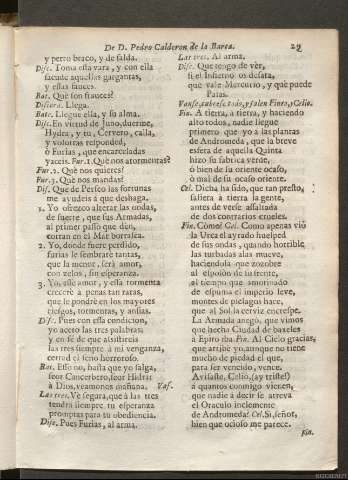 De D. Pedro Calderon de la Barca. 29
y perro braco, y de falda.
Disc. Toma esta vara, y con ella
sacude aquessas gargantas,
y essas fauces.
Bat. Què son frauces?
Discord. Llega.
Bat. Llegue ella, y su alma.
Disc. En virtud de Juno, duerme,
Hydra, y tu, Cervero, calla,
y vosotras responded,
ò Furias, que encarceladas
yaceis. Fur. 1. Què nos atormentas?
Fur. 2. Què nos quieres?
Fur. 3. Què nos mandas?
Dis. Que de Perseo las fortunas
me ayudeis à que deshaga.
1. Yo ofrezco alterar las ondas,
de suerte, que sus Armadas,
al primer passo que dèn,
corran en el Mar borrasca.
2. Yo, donde fuere perdido,
furias le sembrarè tantas,
que la menor, serà amor,
con zelos, sin esperanza.
3. Yo, esse amor, y essa tormenta
crecerè à penas tan raras,
que le pondrè en los mayores
riesgos, tormentas, y ansias.
Disc. Pues con essa condicion,
yo acepto las tres palabras
y en fè de que assistireis
las tres siempre à mi venganza,
cerrad el seno horroroso.
Bat. Esso no, hasta que yo salga,
seor Cancerbero, seor Hidra:
à Dios, veamonos mañana. Vas.
Las tres. Vè segura, que à las tres
tendrà siempre tu esperanza
promptas para tu obediencia.
Disc. Pues Furias, al arma.
Las tres. Al arma.
Disc. Que tengo de vèr,
si el Infierno os desata,
que vale Mercurio, y què puede
Palas.
Vanse, cubrese todo, y salen Fineo, y Celio.
Fin. A tierra, à tierra, y haciendo
alto todos, nadie llegue
primero que yo à las plantas
de Andromeda, que la breve
esfera de aquella Quinta
hizo su fabrica verde,
ò bien de su oriente ocaso,
ò mal de su ocaso oriente.
Cel. Dicha ha sido, que tan presto
saliera à tierra la gente,
antes de verse assaltada
de dos contrarios crueles.
Fin. Còmo? Cel. Como apenas viò
la Urca el ayrado huelped
de sus ondas, quando horrible
las turbadas alas mueve,
haciendola que zozobre
al
al tiempo que amotinado
de espuma el imperio leve,
montes de pielagos hace,
que al Sol la cerviz encrespe.
La Armada anegò, que vimos
que hecha Ciudad de baxeles
à Epiro iba. Fin. Al Cielo gracias,
que arribè yo, aunque no tiene
mucho de piedad el que,
para ser vencido, vence.
Avisaste, Celio, (ay triste!)
à quantos conmigo vienen,
que nadie à decir se atreva
el Oraculo inclemente
de Andromeda? Cel. Si, señor,
bien que ocioso me parece.
Fin.